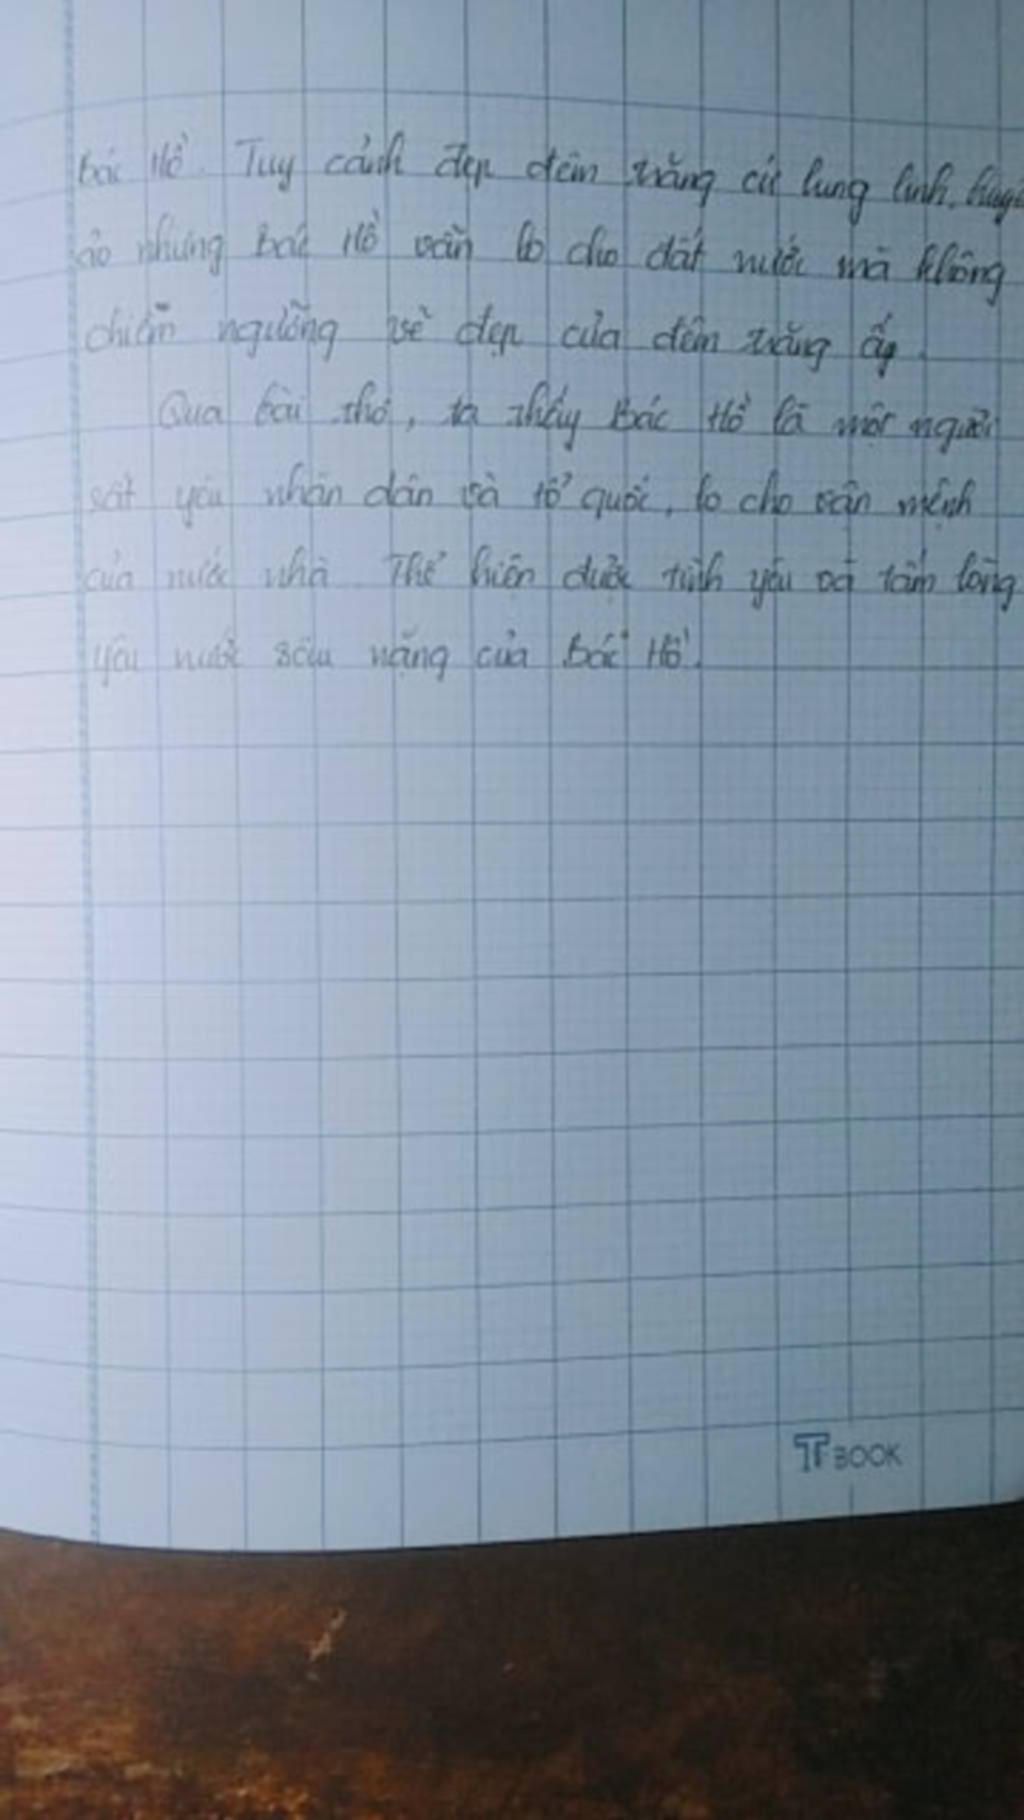 bác Hồ. Tuy cảnh đẹp đêm trăng cứ lung linh, huyề
ảo nhưng bác Hồ vẫn lo cho đất nước mà không
chiêm ngưỡng vẻ đẹp của đêm trăng ấy.
Qua bài thơ, ta thấy Bác Hồ là một người
rất yêu nhân dân và tổ quốc, lo cho vận mệnh
của nước nhà. Thể hiện được tình yêu và tấm lòng
yêu nước sâu nặng của bác Hồ.
TT BOOK